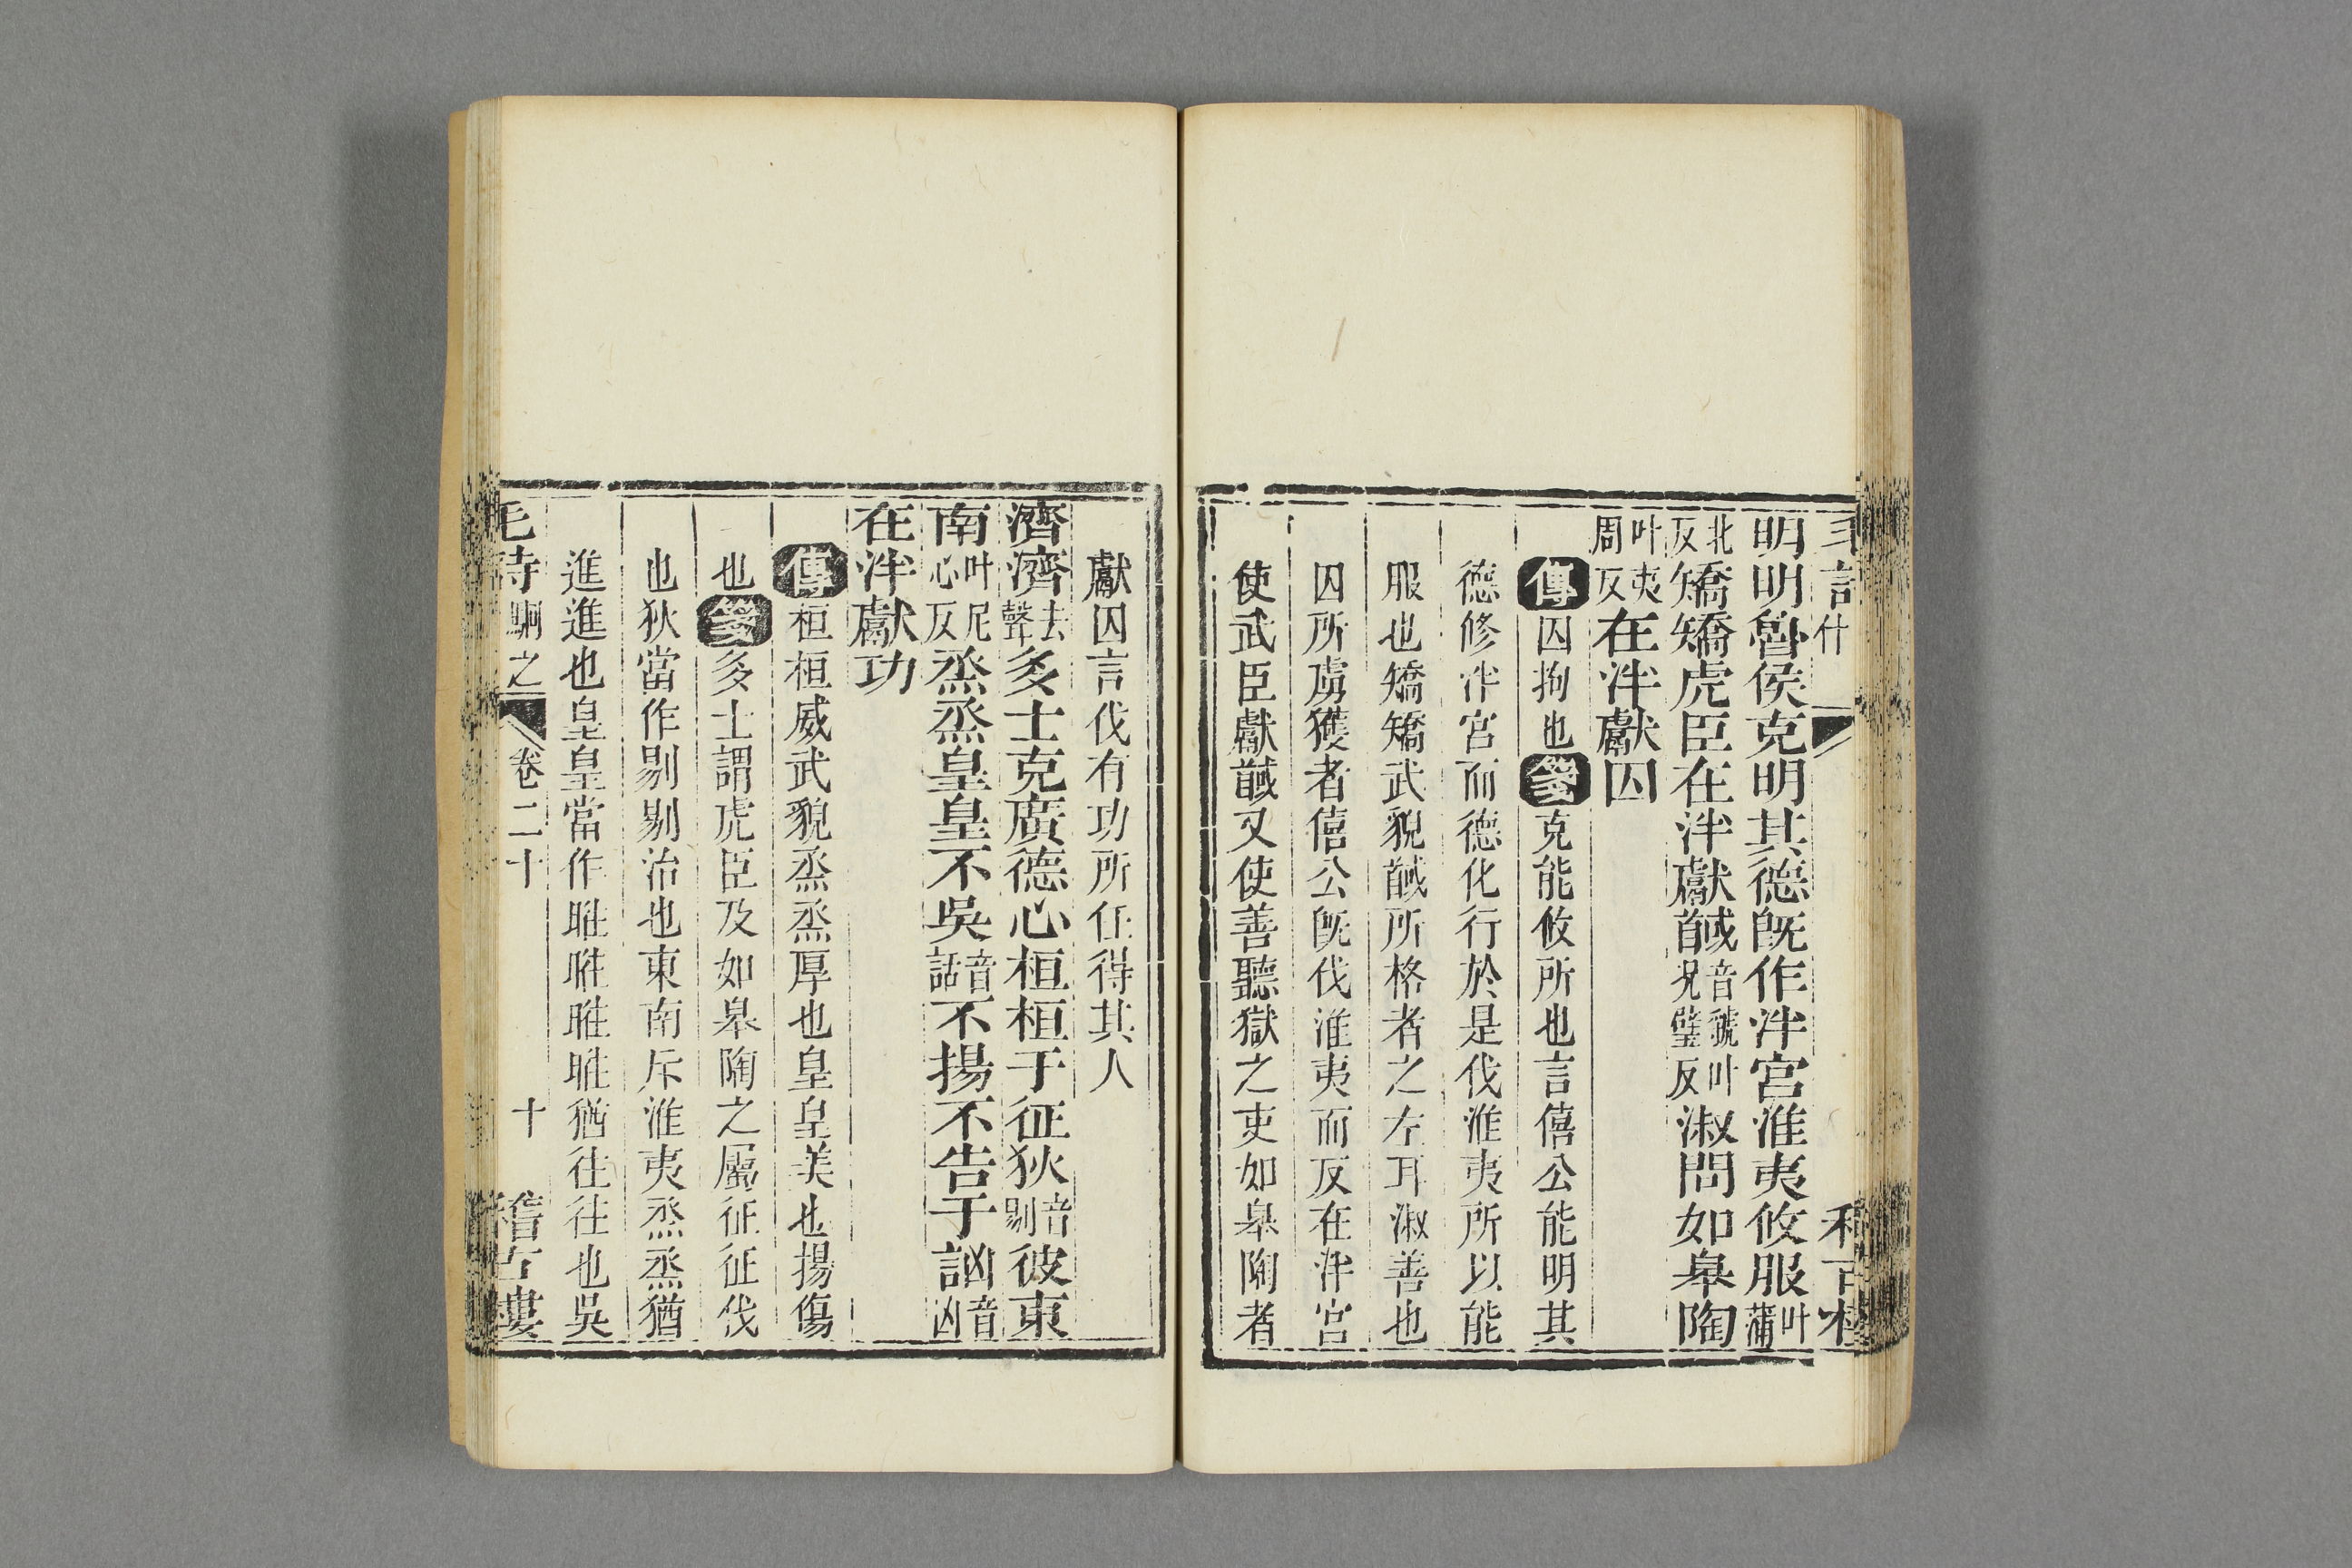 明明魯侯克明其德既作泮宮淮夷攸服叶蒲
北反矯矯虎臣在泮獻馘音虢叶況璧反淑問如皋陶
叶夷周反在泮獻囚
傳囚拘也箋克能攸所也言僖公能明其
德修泮宮而德化行於是伐淮夷所以能
服也矯矯武貌馘所格者之左耳淑善也
囚所虜獲者僖公既伐淮夷而反在泮宮
使武臣獻馘又使善聽獄之吏如皋陶者
獻囚言伐有功所任得其人
濟濟去聲多士克廣德心桓桓于征狄音剔彼東
南叶尼心反烝烝皇皇不吳音話不揚不告于訩音凶
在泮獻功
傳桓桓威武貌烝烝厚也皇皇美也揚傷
也箋多士謂虎臣及如皋陶之屬征征伐
也狄當作剔剔治也東南斥淮夷烝烝猶
進進也皇皇當作暀暀暀暀猶往往也吳
毛詩 駉之 卷二十 十 稽古樓